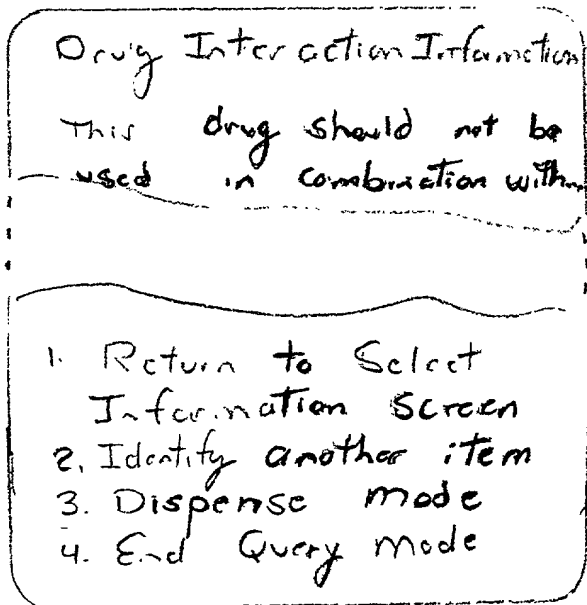 Drug Interaction Information
This drug should not be
used in combination with...
1. Return to Select
Information Screen
2. Identify another item
3. Dispense mode
4. End Query mode